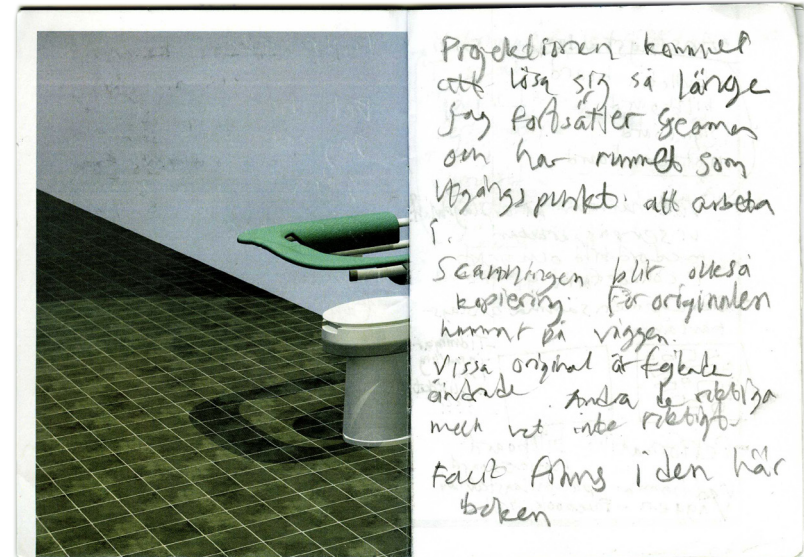 Projektionen kommer
att lösa sig så länge
jag fortsätter scanna
och har rummet som
utgångspunkt: att arbeta
i.
Scanningen blir också
kopiering. För originalen
hamnar på väggen.
Vissa original är fejkade
ändrade. Andra de riktiga
men vet inte riktigt.
Facit finns i den här
boken